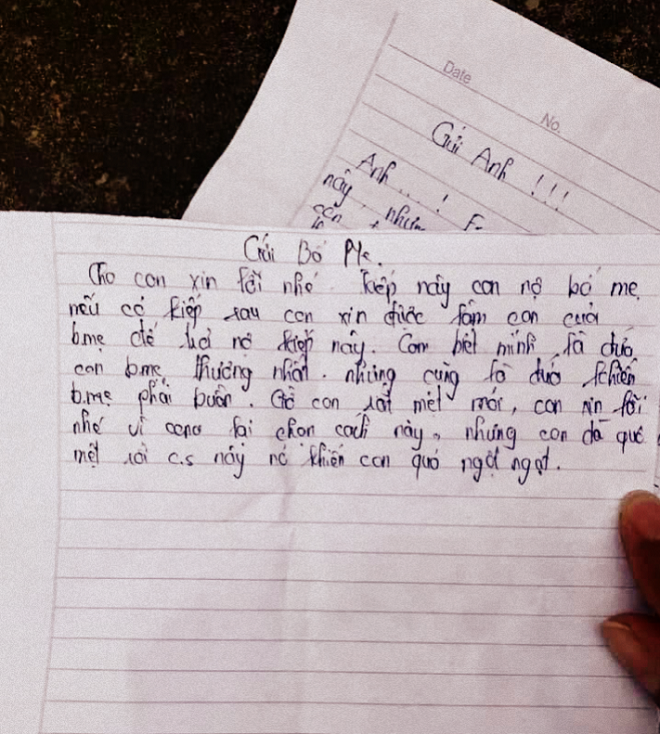 Date
No.
Gửi Anh !!!
Anh ... !
này, như
Gửi Bố Mẹ.
Cho con xin lỗi nhé. Kiếp này con nợ bố mẹ
nếu có kiếp sau con xin được làm con của
b.mẹ để lại nợ kiếp này. Con biết mình là đứa
con b.mẹ thương nhất. nhưng cũng là đứa khiến
b.mẹ phải buồn. Giờ con rất mệt mỏi, con xin lỗi
nhé vì lại chọn cách này, nhưng con đã quá
mệt rồi c.s này nó khiến con quá ngột ngạt.